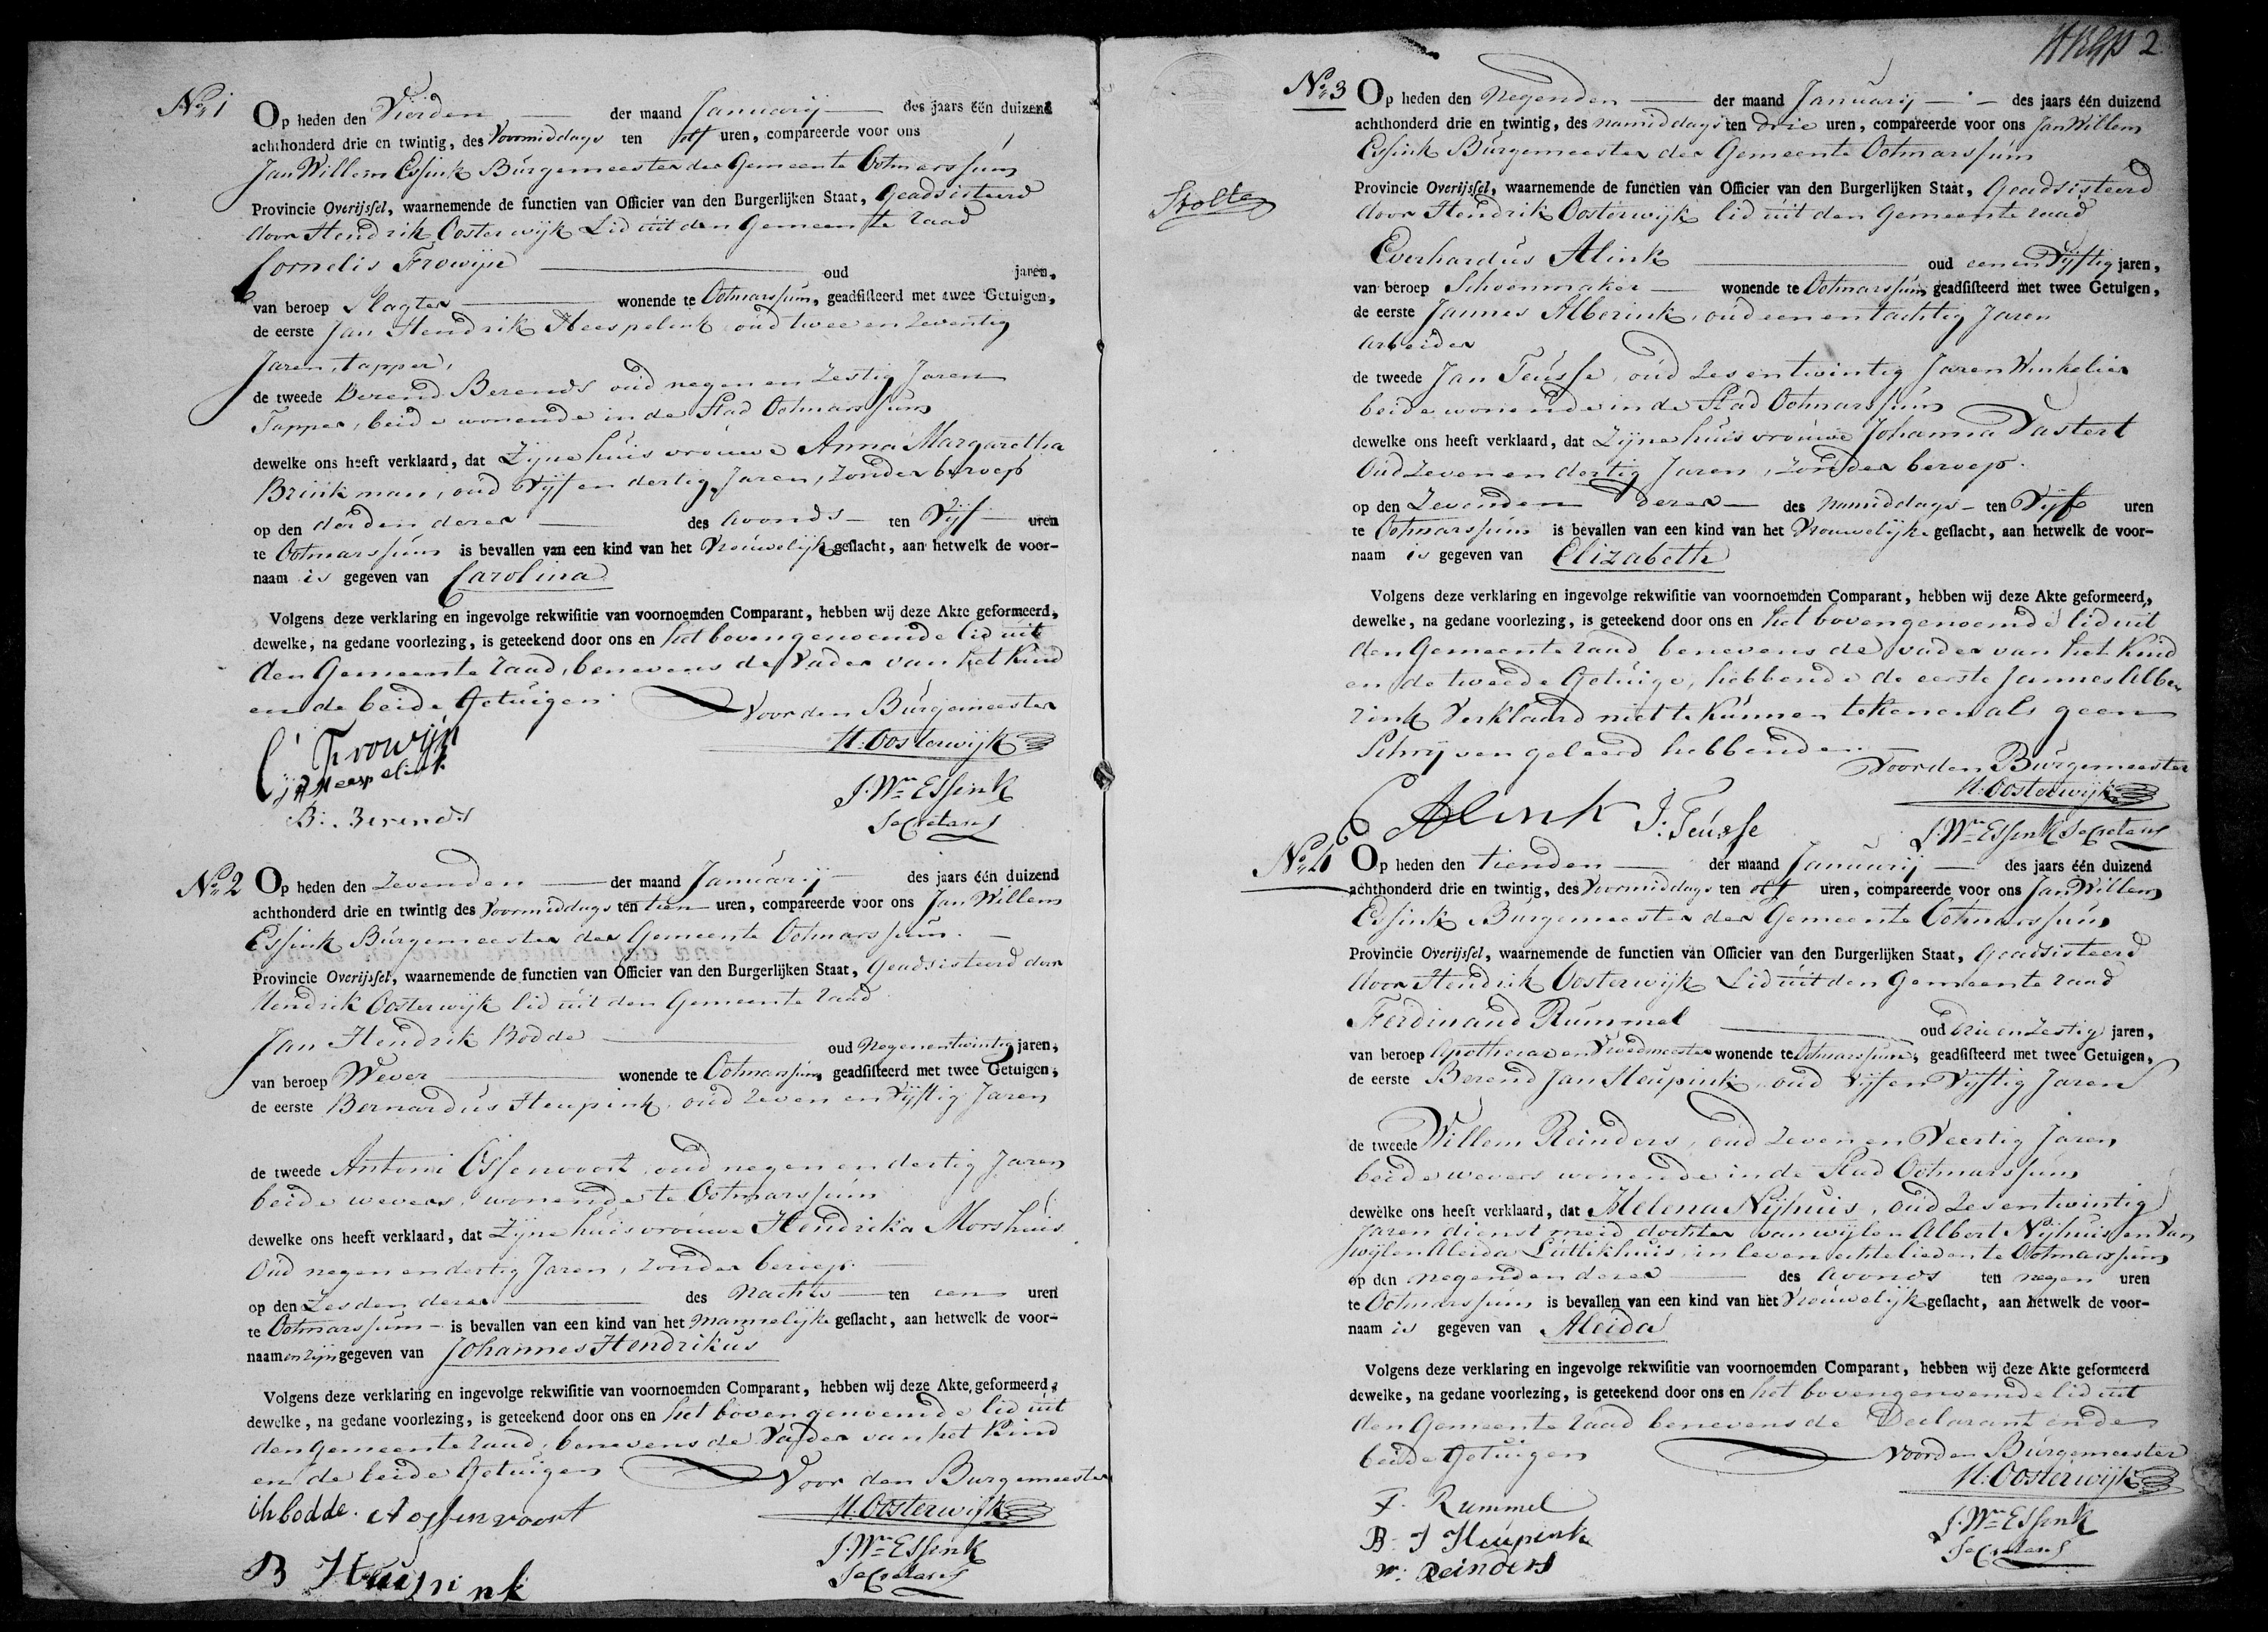 No. 1 Op heden den Vierden der maand Januarij des jaars één duizend
achthonderd drie en twintig, des Voormiddags ten elf uren, compareerde voor ons
Jan Willem Essink Burgemeester der Gemeente Ootmarssum
Provincie Overijssel, waarnemende de functien van Officier van den Burgerlijken Staat, Geadsisteerd
door Hendrik Oosterwijk Lid uit den Gemeente raad
Cornelis Frowijn oud jaren,
van beroep Slagter wonende te Ootmarssum, geadsisteerd met twee Getuigen,
de eerste Jan Hendrik Heespelink oud twee en Zeventig
Jaren, tapper,
de tweede Berend Berends oud negen en Zestig Jaren
Tapper, beide wonende in de Stad Ootmarssum
dewelke ons heeft verklaard, dat Zijne huisvrouwe Anna Margaretha
Brinkman, oud Vijf en dertig Jaren, Zonder beroep
op den derden dezer des avonds ten Vijf uren
te Ootmarssum is bevallen van een kind van het Vrouwelijk geslacht, aan hetwelk de voor-
naam is gegeven van Carolina
Volgens deze verklaring en ingevolge rekwisitie van voornoemden Comparant, hebben wij deze Akte geformeerd,
dewelke, na gedane voorlezing, is geteekend door ons en het bovengenoemde lid uit
den Gemeente raad, benevens de Vader van het Kind
en de beide Getuigen Voor den Burgemeester
C Frowijn H: Oosterwijk
JH Heespelink J. Wm Essink
B: Berends Secretaris
No. 2 Op heden den Zevenden der maand Januarij des jaars één duizend
achthonderd drie en twintig des Voormiddags ten tien uren, compareerde voor ons Jan Willem
Essink Burgemeester der Gemeente Ootmarssum
Provincie Overijssel, waarnemende de functien van Officier van den Burgerlijken Staat, Geadsisteerd door
Hendrik Oosterwijk lid uit den Gemeente raad
Jan Hendrik Bodde oud Negenentwintig jaren,
van beroep Wever wonende te Ootmarssum, geadsisteerd met twee Getuigen,
de eerste Bernardus Heupink, oud Zeven en Vijftig Jaren
de tweede Antoni Ossenvoort, oud negen en dertig Jaren
beide wevers, wonende te Ootmarssum
dewelke ons heeft verklaard, dat Zijne huisvrouwe Hendrika Morshuis
Oud negen en dertig Jaren, Zonder beroep
op den Zesden dezer des Nachts ten een uren
te Ootmarssum is bevallen van een kind van het Mannelijke geslacht, aan hetwelk de voor-
naamen zijn gegeven van Johannes Hendrikus
Volgens deze verklaring en ingevolge rekwisitie van voornoemden Comparant, hebben wij deze Akte geformeerd,
dewelke, na gedane voorlezing, is geteekend door ons en het bovengenoemde lid uit
den Gemeente raad, benevens de Vader van het Kind
en de beide Getuigen Voor den Burgemeester
ih bodde. A ossenvoort H: Oosterwijk
B Heupink J. Wm Essink
Secretaris
2
Stolte
No. 3 Op heden den Negenden der maand Januarij des jaars één duizend
achthonderd drie en twintig, des namiddags ten drie uren, compareerde voor ons Jan Willem
Essink Burgemeester der Gemeente Ootmarssum
Provincie Overijssel, waarnemende de functien van Officier van den Burgerlijken Staat, Geadsisteerd
door Hendrik Oosterwijk lid uit den Gemeente raad
Everhardus Alink oud eenen Vijftig jaren,
van beroep Schoenmaker wonende te Ootmarssum, geadsisteerd met twee Getuigen,
de eerste Jannes Alberink, oud een en tachtig Jaren
arbeider
de tweede Jan Teusse, oud Zes en twintig Jaren Winkelier
beide wonende in de Stad Ootmarssum
dewelke ons heeft verklaard, dat Zijne huisvrouwe Johanna Vastert
Oud Zeven en dertig Jaren, Zonder beroep.
op den Zevenden dezer des namiddags ten Vijf uren
te Ootmarssum is bevallen van een kind van het Vrouwelijke geslacht, aan hetwelk de voor-
naam is gegeven van Elizabeth
Volgens deze verklaring en ingevolge rekwisitie van voornoemden Comparant, hebben wij deze Akte geformeerd,
dewelke, na gedane voorlezing, is geteekend door ons en het bovengenoemde lid uit
den Gemeente raad benevens de vader van het Kind
en de tweede Getuige, hebbende de eerste Jannes Albe
rink Verklaard niet te Kunnen tekenen als geen
Schrijven geleerd hebbende. Voor den Burgemeester
H: Oosterwijk
E Alink J: Teusse J. Wm Essink Secretaris
No. 4 Op heden den tienden der maand Januarij des jaars één duizend
achthonderd drie en twintig, des Voormiddags ten elf uren, compareerde voor ons Jan Willem
Essink Burgemeester der Gemeente Ootmarssum
Provincie Overijssel, waarnemende de functien van Officier van den Burgerlijken Staat, Geadsisteerd
door Hendrik Oosterwijk Lid uit den Gemeente raad
Ferdinand Rummel oud drie en Zestig jaren,
van beroep Apothecar en Vroedmeester wonende te Ootmarssum, geadsisteerd met twee Getuigen,
de eerste Berend Jan Heupink, oud Vijf en Vijftig Jaren
de tweede Willem Reinders, oud Zeven en Veertig Jaren
beide wevers wonende in de Stad Ootmarssum
dewelke ons heeft verklaard, dat Helena Nijhuis, oud Zes en twintig
Jaren dienstmeid dochter van wijlen Albert Nijhuis en Van
wijlen Aleida Luttikhuis, in leven echtelieden te Ootmarssum
op den negenden dezer des avonds ten negen uren
te Ootmarssum is bevallen van een kind van het Vrouwelijk geslacht, aan hetwelk de voor-
naam is gegeven van Aleida
Volgens deze verklaring en ingevolge rekwisitie van voornoemden Comparant, hebben wij deze Akte geformeerd
dewelke, na gedane voorlezing, is geteekend door ons en het bovengenoemde lid uit
den Gemeente raad benevens de Declarant en de
beide Getuigen Voor den Burgemeester
H: Oosterwijk
F. Rummel
B. J Heupink J. Wm Essink
W: Reinders Secretaris